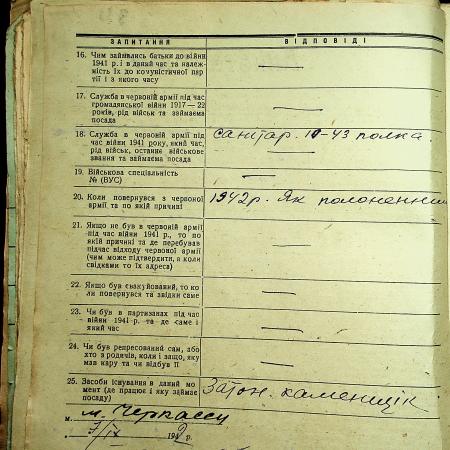 ЗАПИТАННЯ ВІДПОВІДІ
16. Чим займались батьки до війни
1941 р. і в даний час та належ-
ність їх до комуністичної пар-
тії і з якого часу
17. Служба в червоній армії під час
громадянської війни 1917 — 22
років, рід військ та займаєма
посада
18. Служба в червоній армії під
час війни 1941 року, який час,
рід військ, останнє військове
звання та займаєма посада
санітар. 10-43 полка.
19. Військова спеціяльність
№ (ВУС)
20. Коли повернувся з червоної
армії та по якій причині
1942 р. Як полоненний
21. Якщо не був в червоній армії
під час війни 1941 р., то по
якій причині та де перебував
підчас відходу червоної армії
(чим може підтвердити, а коли
свідками то їх адреса)
22. Якщо був євакуйований, то ко-
ли повернувся та звідки саме
23. Чи був в партизанах під час
війни 1941 р. та де саме і
який час
24. Чи був репресований сам, або
хто з родичів, коли і защо, яку
мав кару та чи відбув її
25. Засоби існування в даний мо-
мент (де працює і яку займає
посаду)
Затон. каменщік
м. м. Черкассы
7/IX 1942 р.